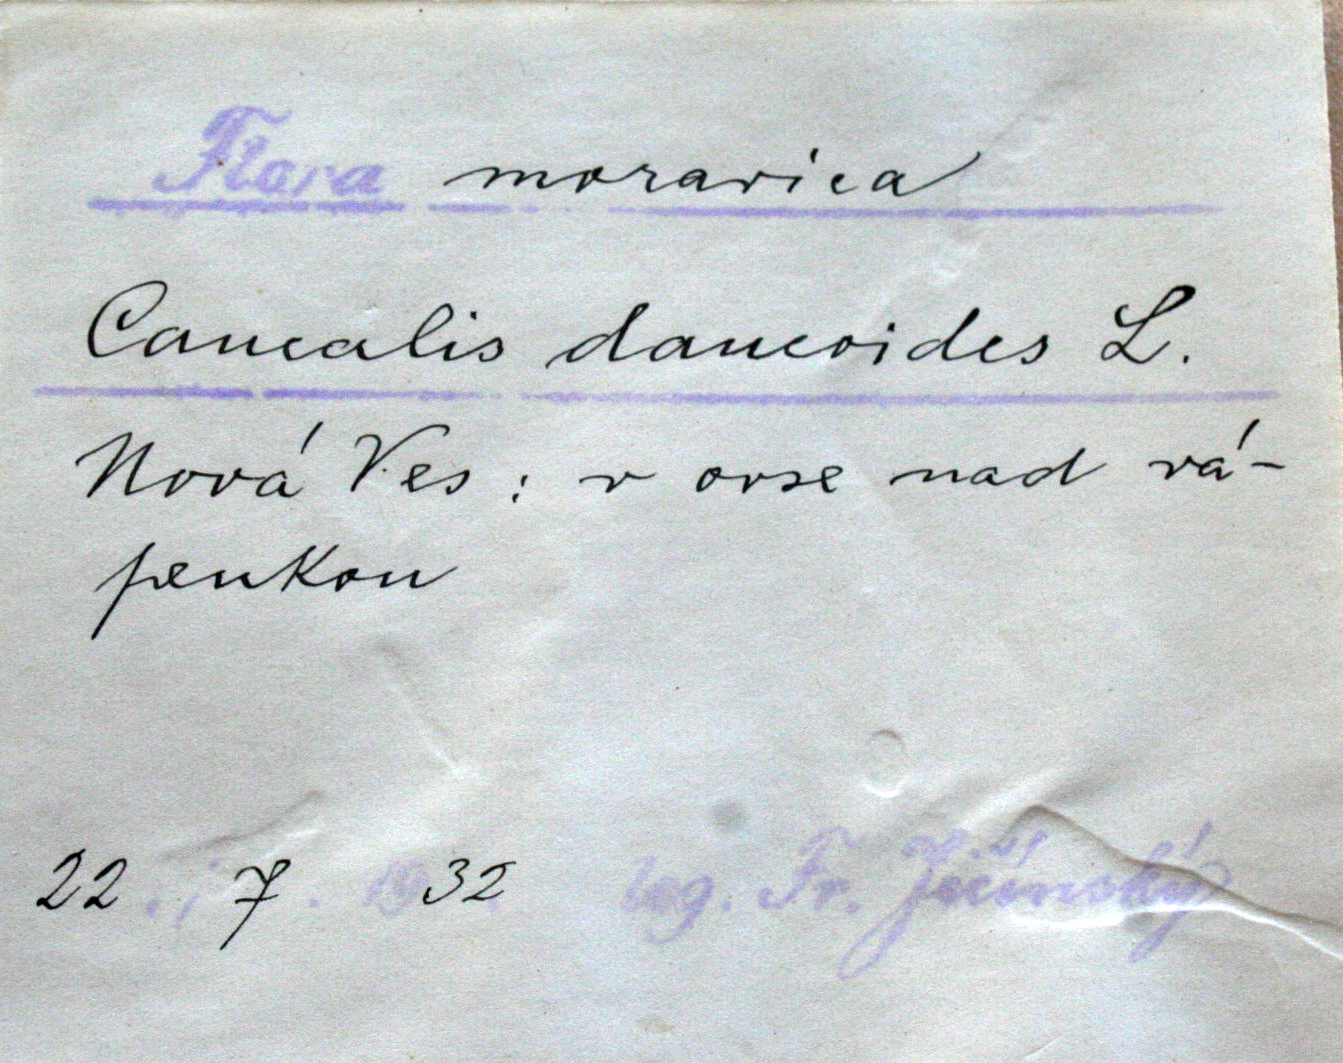 Flora moravica
Caucalis daucoides L.
Nová Ves: v ovse nad vá-
penkou
22. 7. 1932 leg. Fr. Jičínský